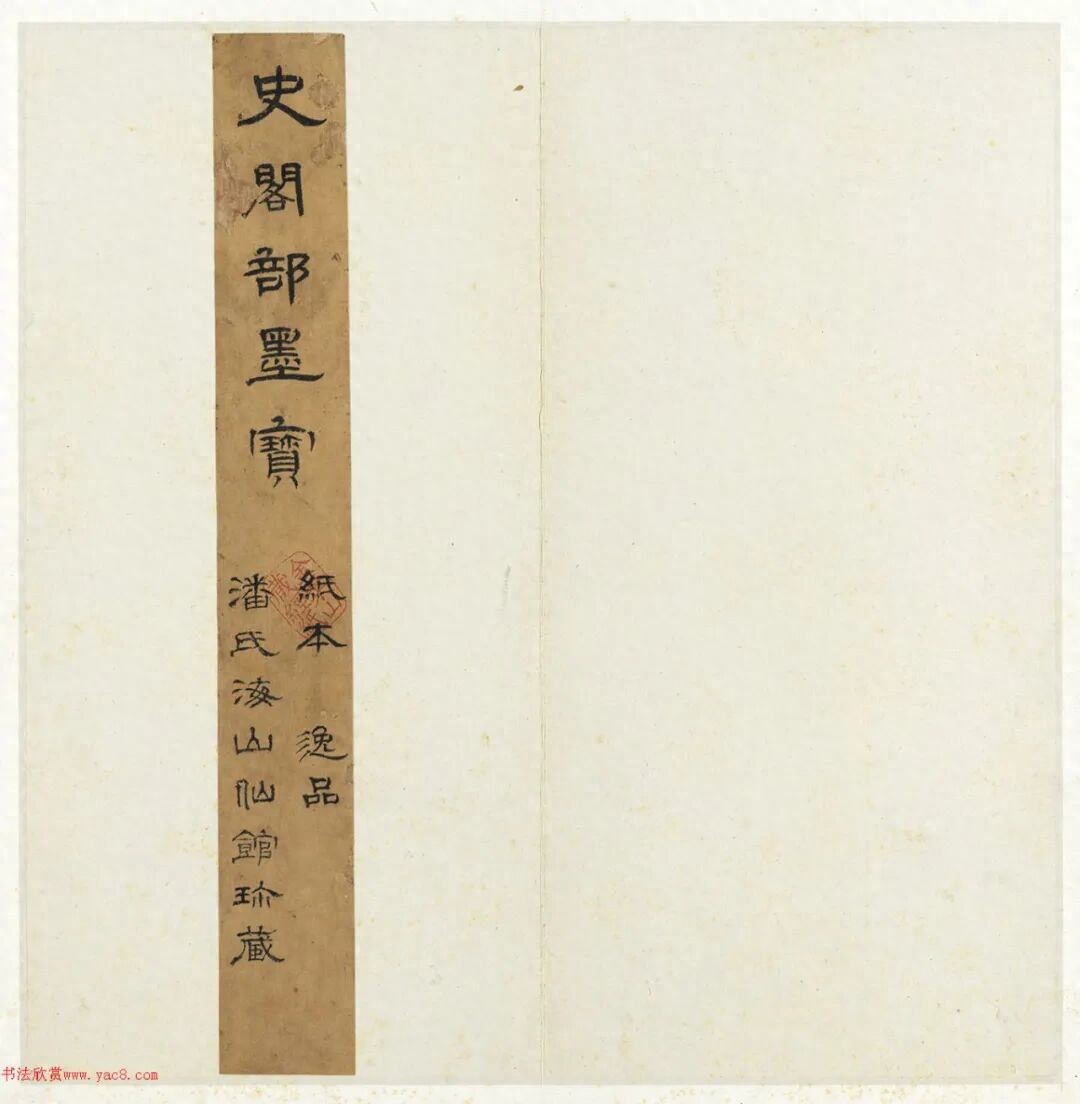 史閣部墨寶
紙本 逸品
潘氏海山仙館珎藏
书法欣赏www.yac8.com